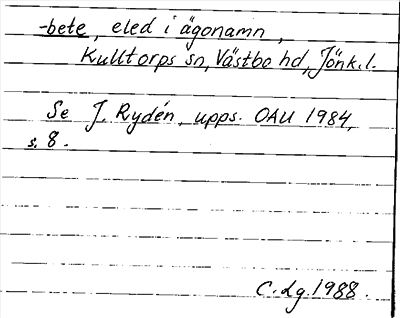 -bete, eled i ägonamn,
Kulltorps sn, Västbo hd, Jönk.l.
Se J. Rydén, upps. OAU 1984,
s. 8.
C. Lg. 1988.